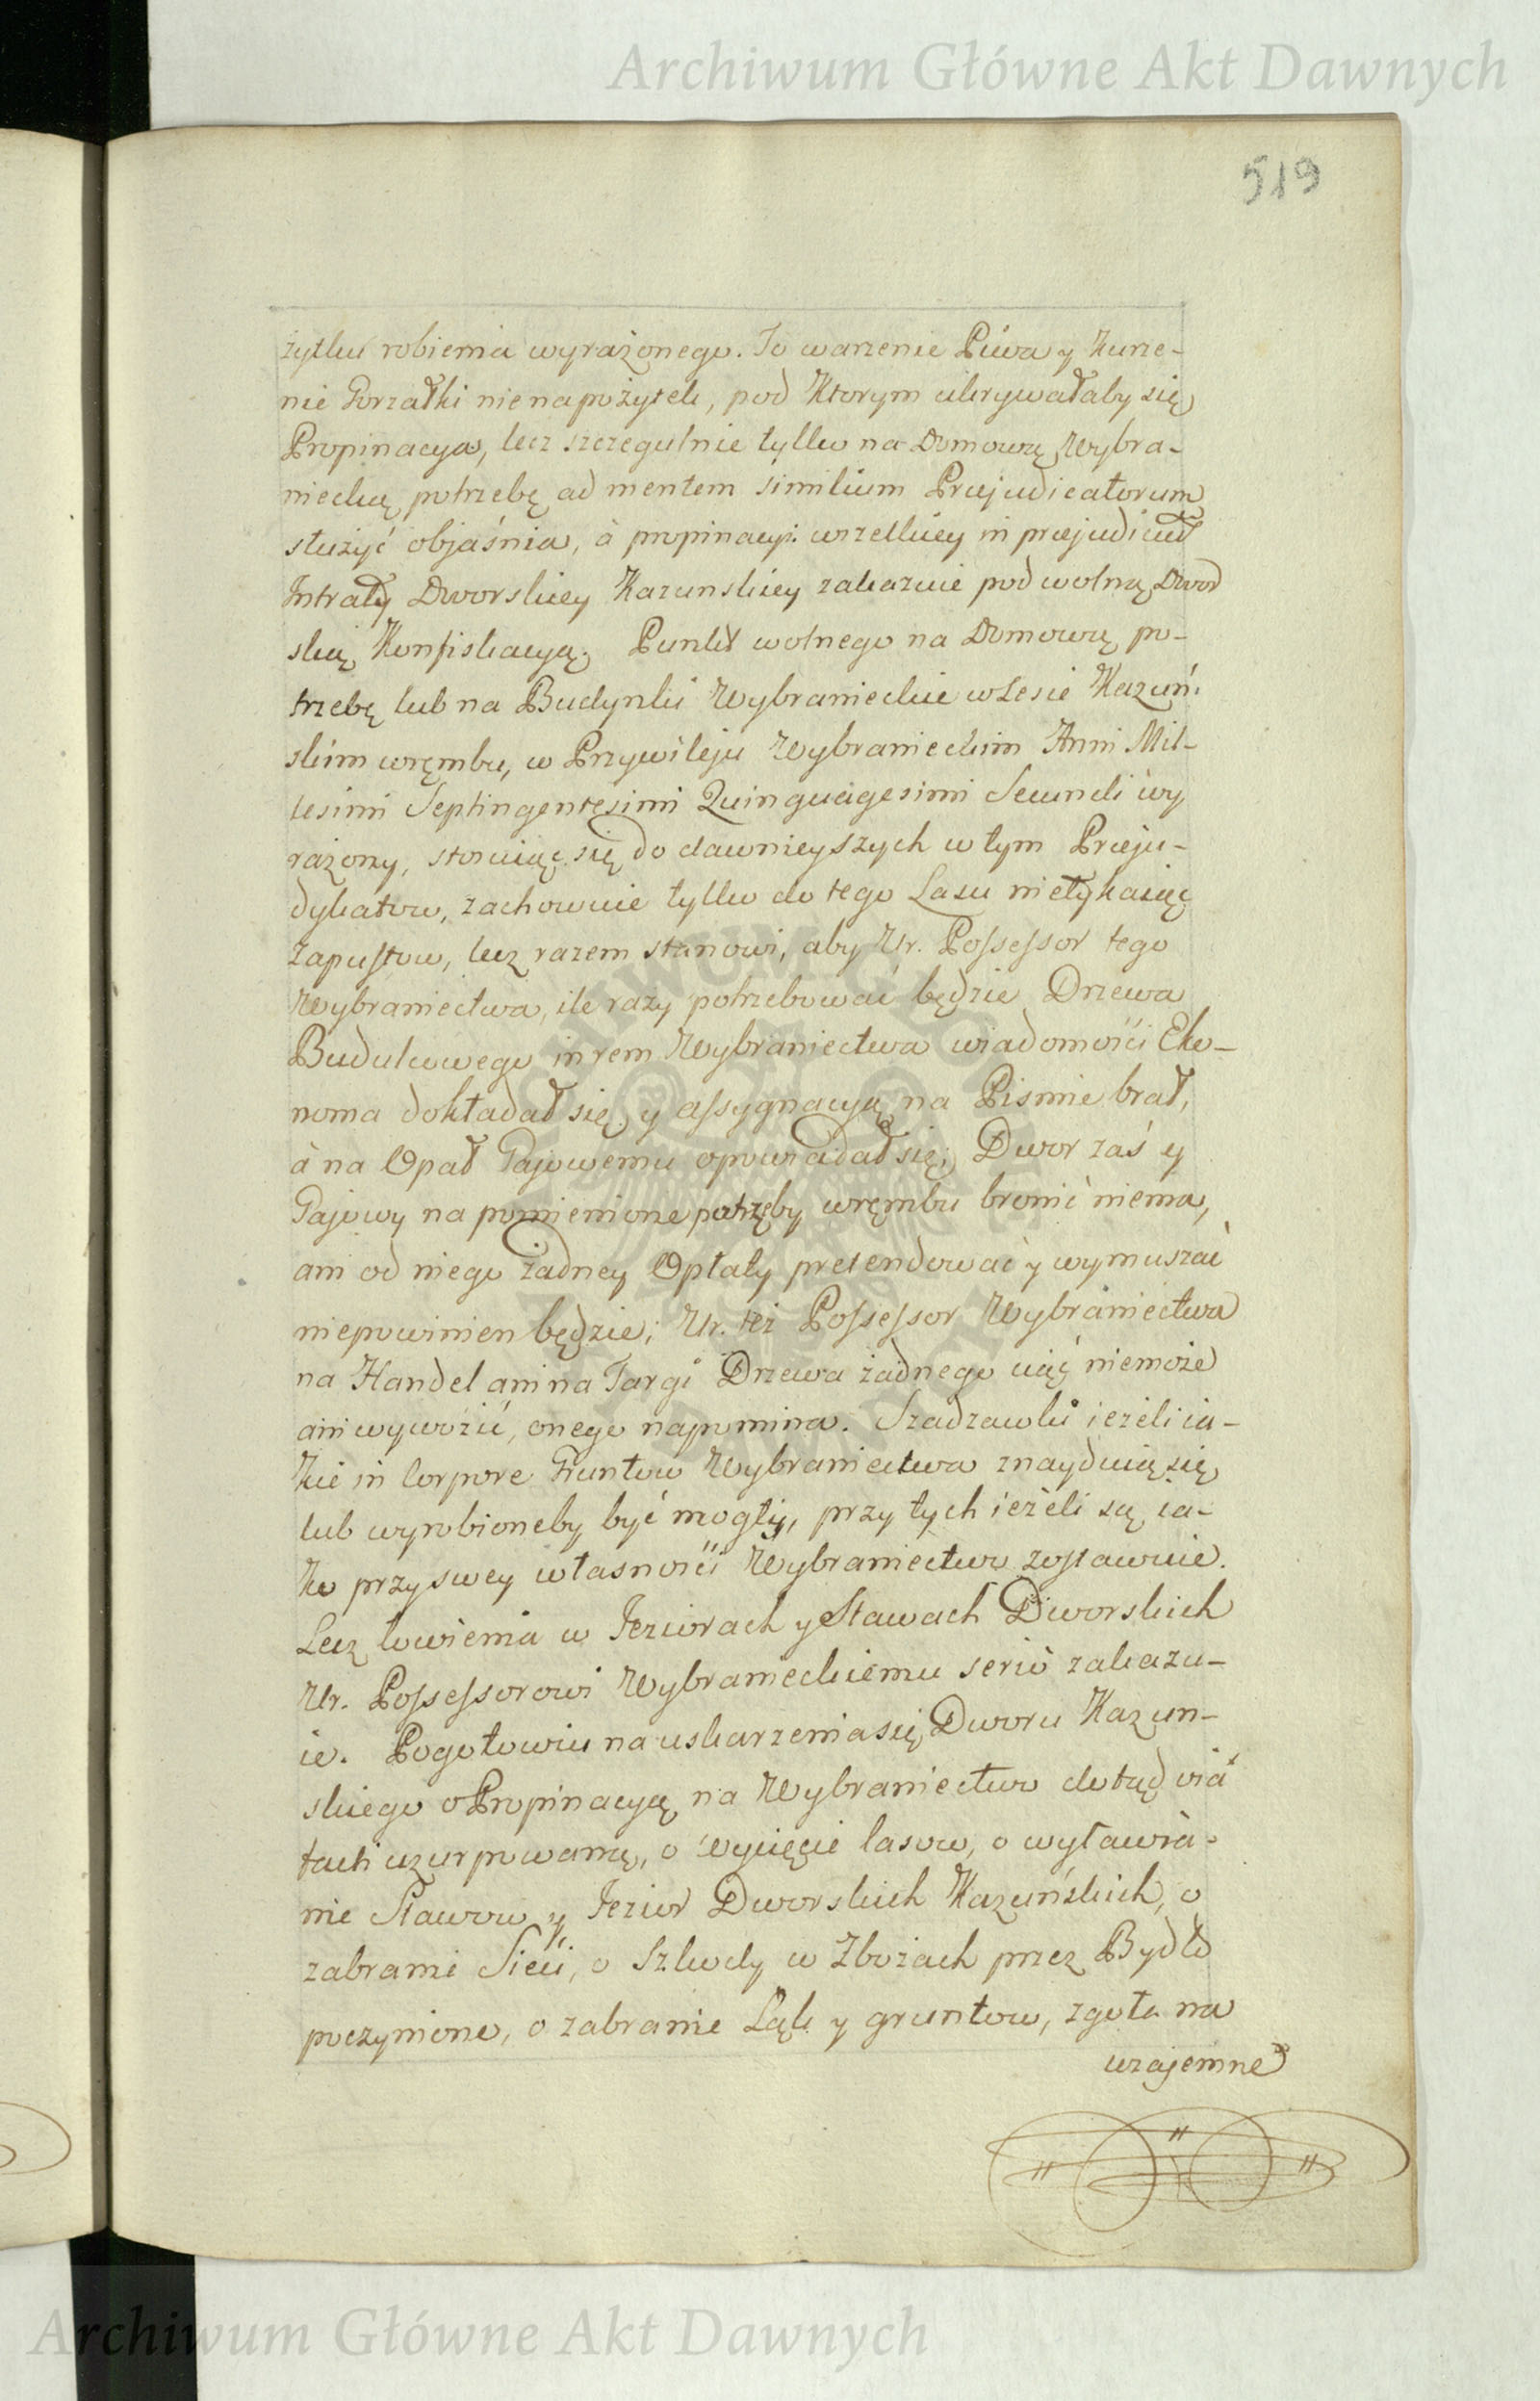 Archiwum Główne Akt Dawnych
519
żytku robienia wyrażonego. To warzenie Piwa y Kurze-
nie Gorzałki nie na pożytek, pod Ktorym ukrywałaby się
Propinacya, lecz szczegulnie tylko na Domową Wybra-
niecką potrzebę ad mentem similium Præjudicatorum
służyć objaśnia, à propinacyi wszelkiey in præjudicium
Intraty Dworskiey Kazunskiey zakazuie pod wolną Dwor
ską Konfiskacyą. Punkt wolnego na Domową po-
trzebę lub na Budynki Wybranieckie w Lesie Kazuń-
skim wrębu, w Przywileju Wybranieckim Anni Mil-
lesimi Septingentesimi Quinquagesimi Secundi wy
rażony, stosuiąc się do dawnieyszych w tym Præju-
dykatow, zachowuie tylko do tego Lasu nietykaiąc
Zapustow, lecz razem stanowi, aby Ur. Possessor tego
Wybraniectwa, ile razy potrzebować będzie Drzewa
Budulcowego in rem Wybraniectwa wiadomości Eko-
noma dokładał się, y assygnacyą na Pismie brał,
à na Opał Gajowemu opowiadał się; Dwor zaś y
Gajowy na pomienione potrzeby wrębu bronić niema,
ani od niego żadney Opłaty pretendować y wymuszać
niepowinien będzie; Ur. też Possessor Wybraniectwa
na Handel ani na Targi Drzewa żadnego ciąć niemoże
ani wywozić, onego napomina. Szadzawki ieżeli ia-
kie in Corpore Gruntow Wybraniectwa znayduią się
lub wyrobioneby być mogły, przy tych ieżeli są ia-
ko przy swey własności Wybraniectwo zostawuie.
Lecz łowienia w Jeziorach y Stawach Dworskich
Ur. Possessorowi Wybranieckiemu seriò zakazu-
ie. Pogotowiu na uskarzenia się Dworu Kazun-
skiego o Propinacyą na Wybraniectwo dotąd via
facti uzurpowaną, o wycięcie lasow, o wyławia-
nie Stawow y Jezior Dworskich Kazuńskich, o
zabranie Sieci, o Szkody w Zbożach przez Bydło
poczynione, o zabranie Łąk y gruntow, zgoła na
wzajemne
Archiwum Główne Akt Dawnych